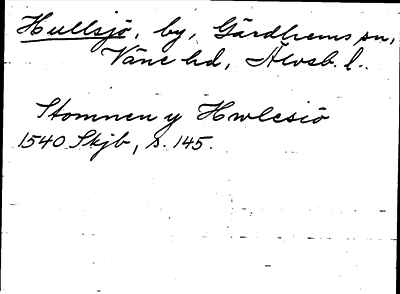 Hullsjö, by, Gärdhems sn,
Väne hd, Älvsb. l..
Stomnen y Hwlesiö
1540 Skjb, s. 145.